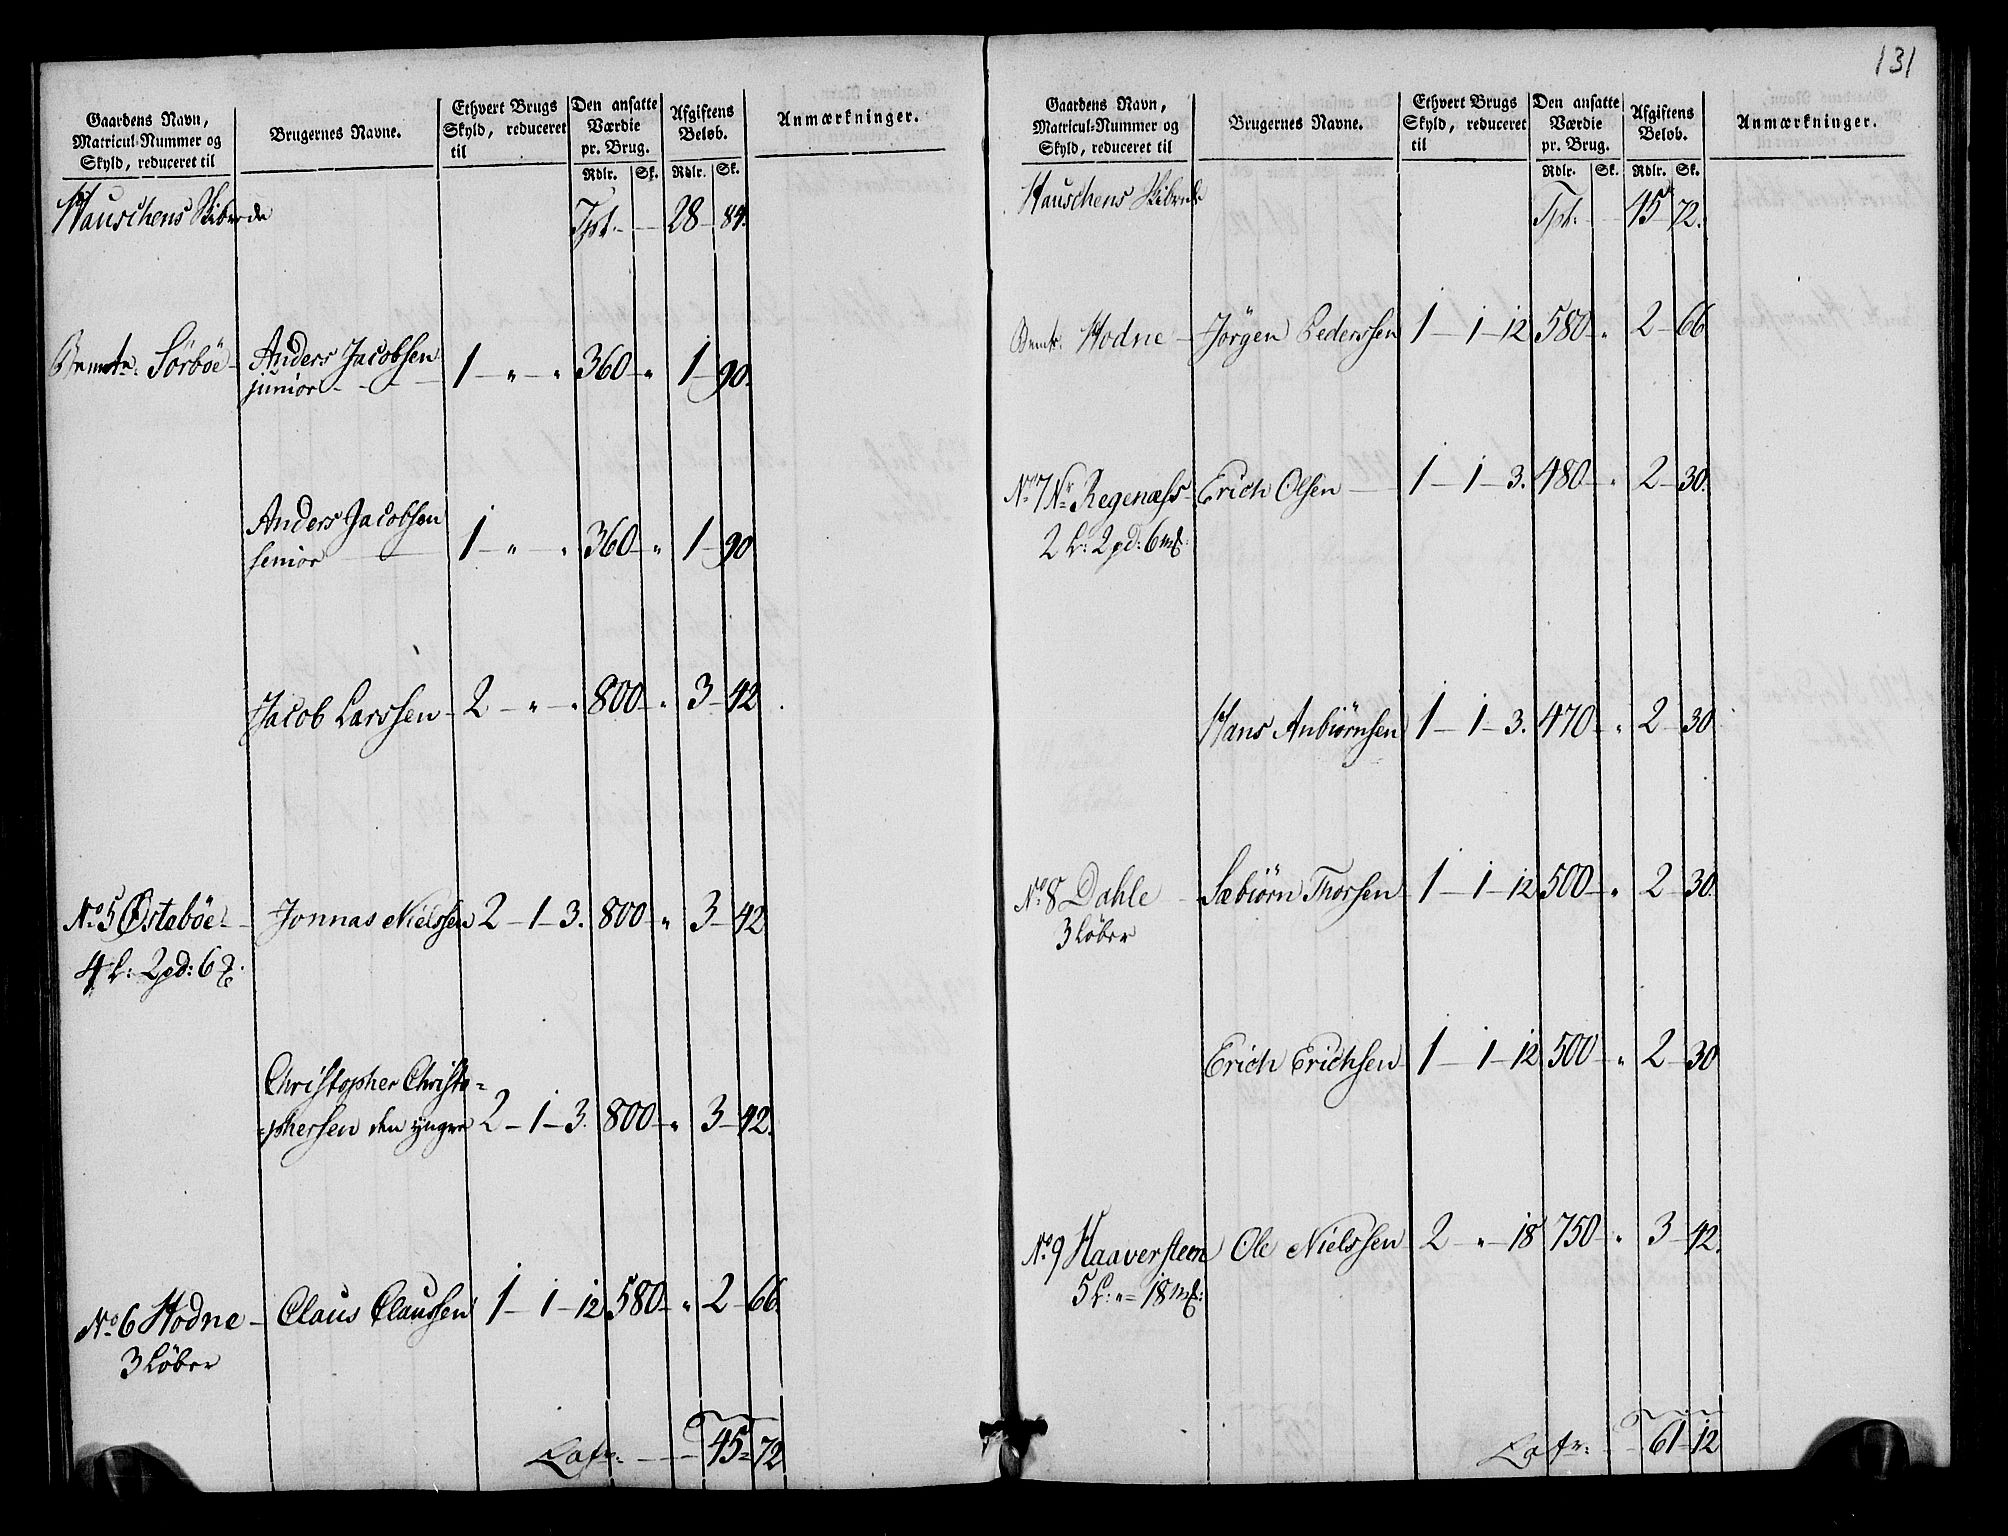 Gaardens Navn,
Matricul-Nummer og
Skyld, reduceret til
Brugernes Navne.
Ethvert Brugs
Skyld, reduceret
til
Den ansatte
Værdie
pr. Brug.
Rdlr. Sk.
Afgiftens
Beløb.
Rdlr. Sk.
Anmærkninger.
Hauschens Skibrede Tpt. 28 - 84.
Bemte. Sörböe - Anders Jacobsen
junior - - - 1 - " - " 360 - " 1 - 90.
Anders Jacobsen
senior 1 - " - " 360 - " 1 - 90
Jacob Larssen - 2 - " - " 800 - " 3 - 42
No. 5 Østeböe - Jonnas Nielssen 2 - 1 - 3. 800 - " 3 - 42
4 L: 2 pd: 6
Christopher Christo=
=phersen den yngre 2 - 1 - 3. 800 - " 3 - 42.
No. 6 Hodne - Claus Claussen 1 - 1 - 12 580 - " 2 - 66.
3 Löber
Lafr. - - 45 = 72
131
Gaardens Navn,
Matricul-Nummer og
Skyld, reduceret til
Brugernes Navne.
Ethvert Brugs
Skyld, reduceret
til
Den ansatte
Værdie
pr. Brug.
Rdlr. Sk.
Afgiftens
Beløb.
Rdlr. Sk.
Anmærkninger.
Hauschens Skibrede Tpt. 45 72.
Bemte. Hodne - Jörgen Pederssen 1 - 1 - 12 580 - " 2 - 66
No. 7 Nr. Regenæss - Erich Olsen 1 - 1 - 3. 480 - " 2 - 30.
2 L: 2 pd: 6 mk:
Hans Anbiörnsen 1 - 1 - 3. 470 - " 2 - 30
No. 8 Dahle - Sæbiörn Thorsen 1 - 1 - 12 500 - " 2 - 30.
3 Löber
Erich Erichsen 1 - 1 - 12 500 - " 2 - 30
No. 9 Haaversteen Ole Nielssen 2 - " - 18 750 - " 3 - 42.
5 L: " = 18 mk:
Lafr: 61 - 12